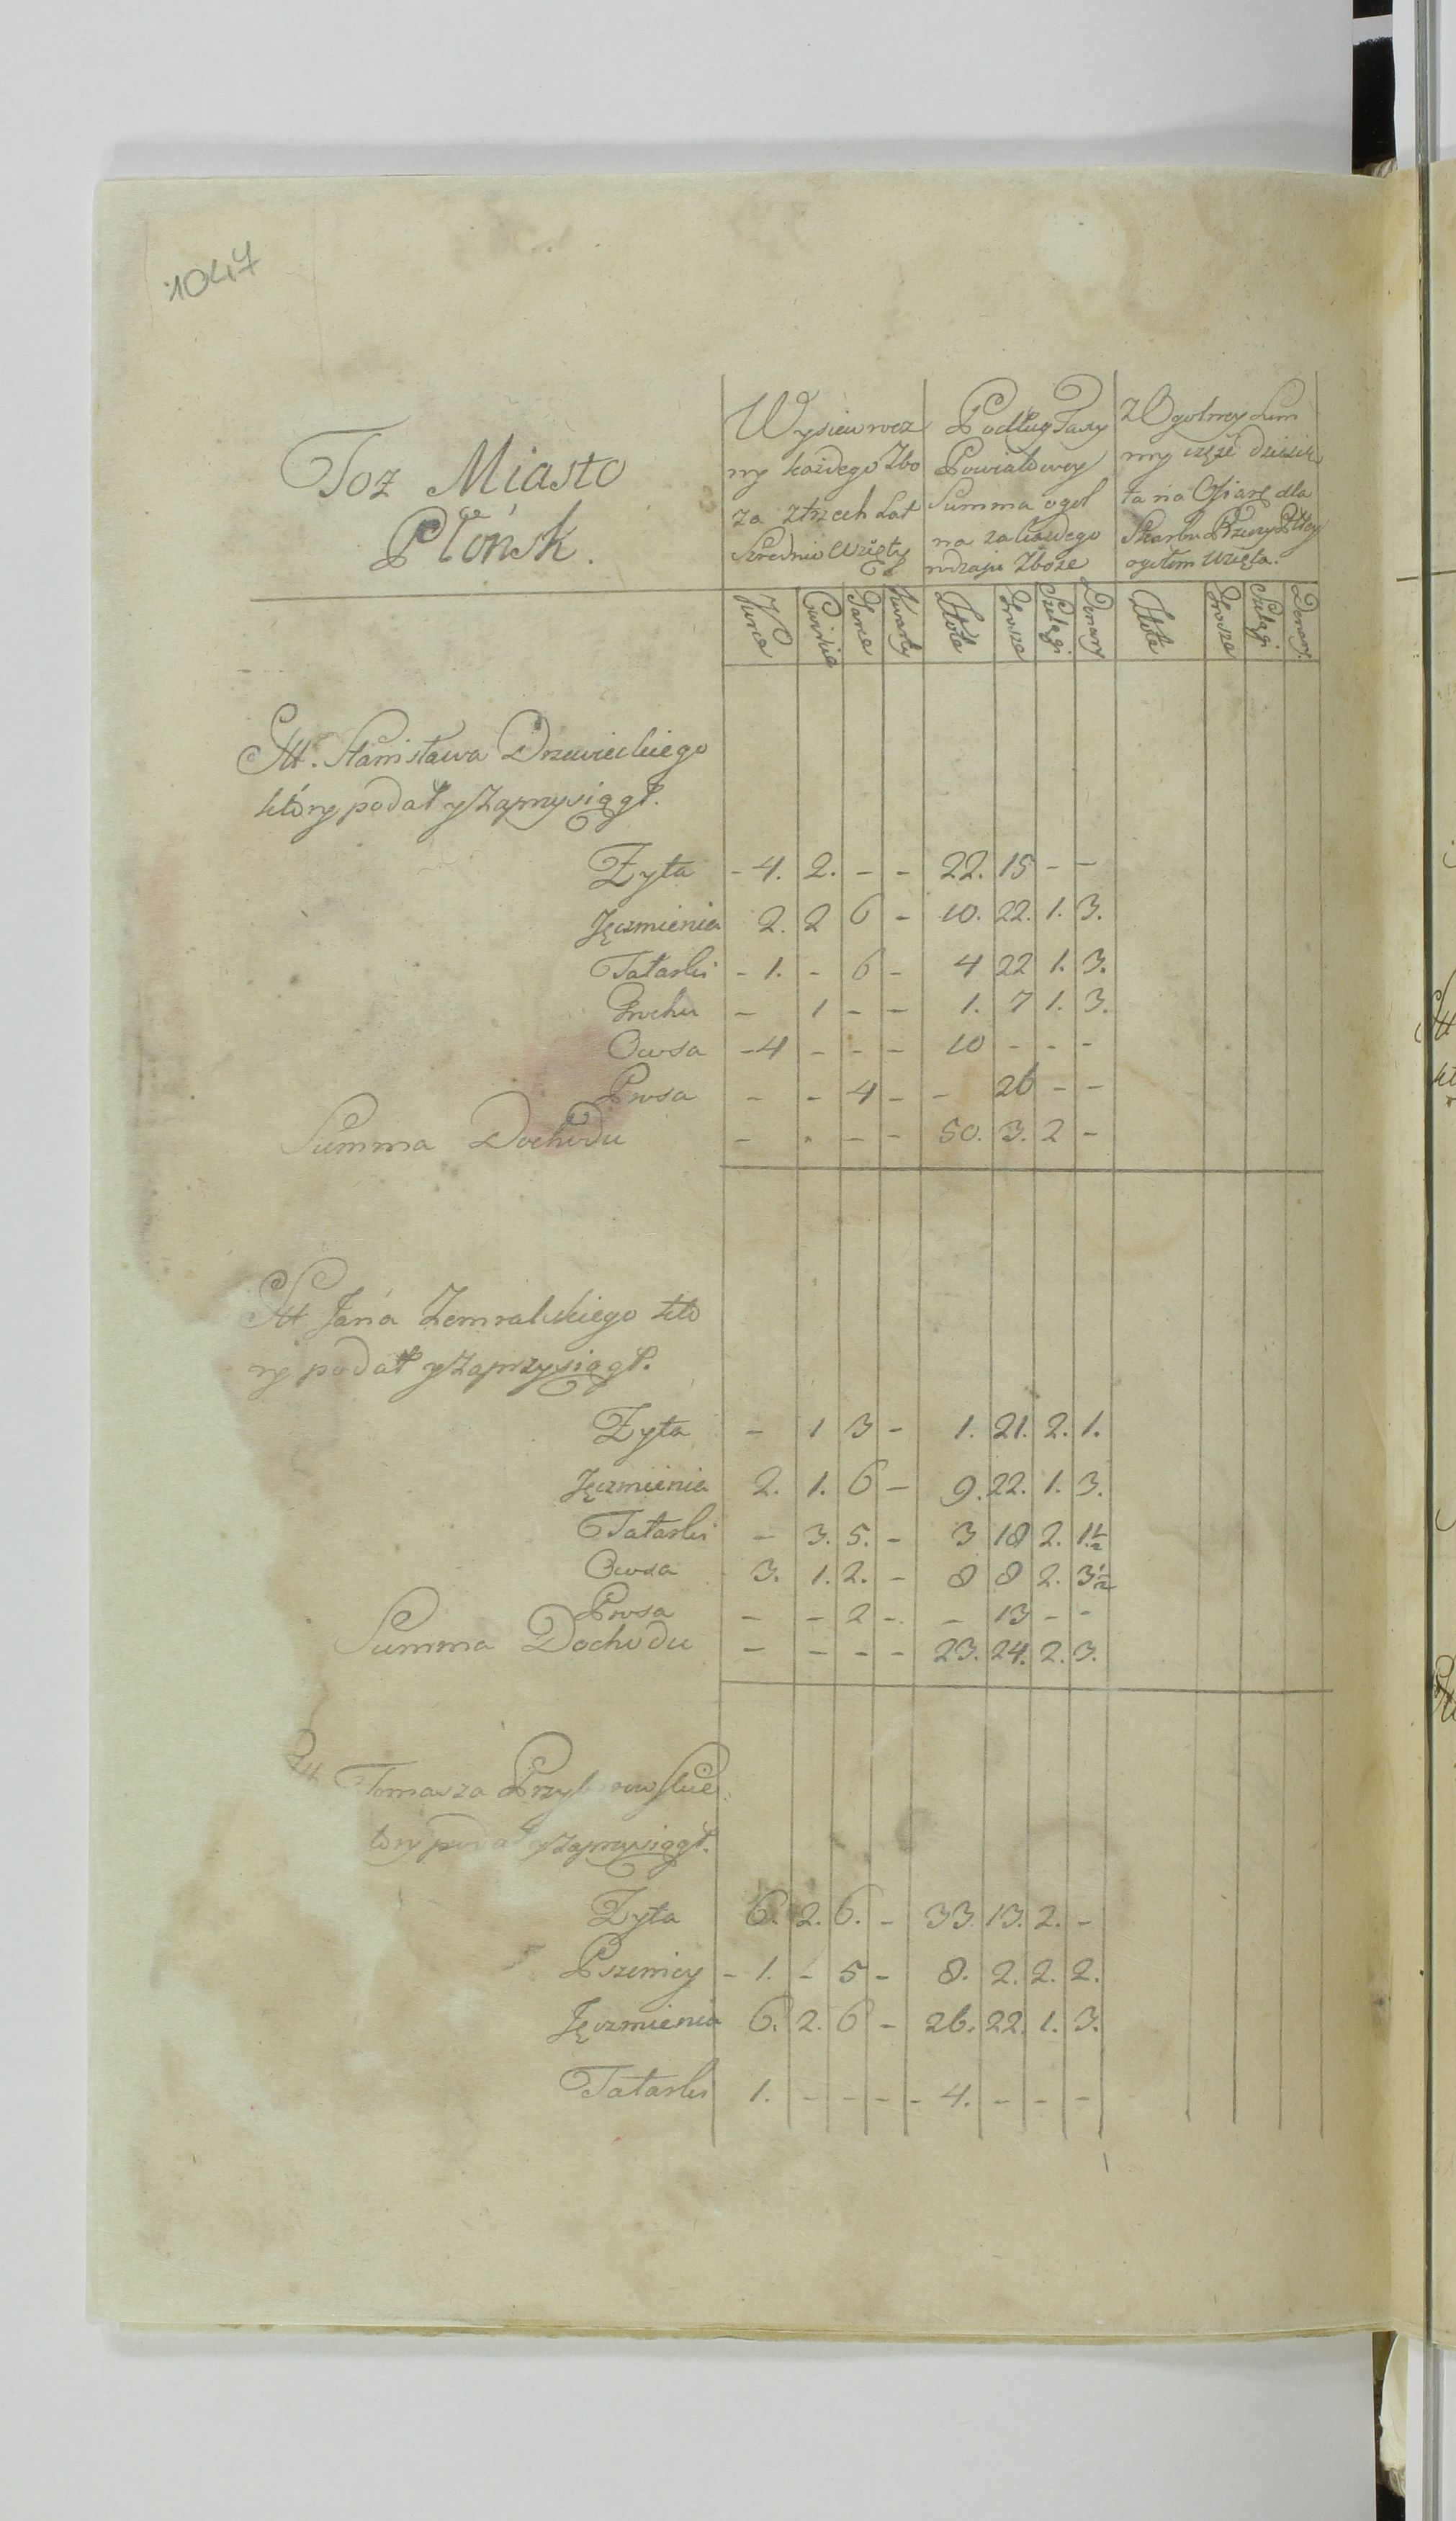 1047
Toż Miasto
Płońsk.
Wysiew rocz
ny każdego Zbo
ża z trzech Lat
Srzednio wzięty
Podług Taxy
Powiatowey
Summa ogol
na za każdego
rodzaju Zboże
Z Ogolney Sum
my część dziesią
ta na Ofiarę dla
Skarbu Rzeczypltey
ogołem wzięta.
Korce Ćwierci Garce Kwarty Złote Grosze Szelągi Denary Złote Grosze Szelągi Denary
Stanisława Drzewieckiego
ktory podał y zaprzysiągł.
Zyta - 4. 2. - - 22. 15 - -
Jęczmienia 2. 2 6 - 10. 22. 1. 3.
Tatarki - 1. - 6 - 4 22 1. 3.
Grochu - 1 - - 1. 7 1. 3.
Owsa - 4 - - - 10 - - -
Prosa - - 4 - - 26 - -
Summa Dochodu - - - - 50. 3. 2 -
Jana Zemralskiego kto
ry podał y zaprzysiągł.
Zyta - 1 3 - 1. 21. 2. 1.
Jęczmienia 2. 1. 6 - 9. 22. 1. 3.
Tatarki - 3. 5. - 3 18 2. 1 1/2
Owsa 3. 1. 2. - 8 8 2. 3 1/2
Prosa - - 2 - - 13 - -
Summa Dochodu - - - - 23. 24. 2. 3.
Tomasza
tory podał y zaprzysiągł.
Zyta 6. 2. 6. - 33. 13. 2. -
Pszenicy - 1. - 5 - 8. 2. 2. 2.
Jęczmienia 6. 2. 6 - 26. 22. 1. 3.
Tatarki 1. - - - - 4. - - -